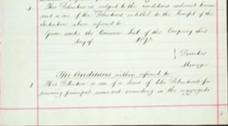 This Debenture is subject to the conditions endorsed hereon
and is one of the Debentures entitled to the benefit of the
Indenture above referred to
Given under the Common Seal of the Company this
day of 19
Director
The Conditions within referred to
This Debenture is one of a Series of like Debentures for
securing principal sums not exceeding in the aggregate